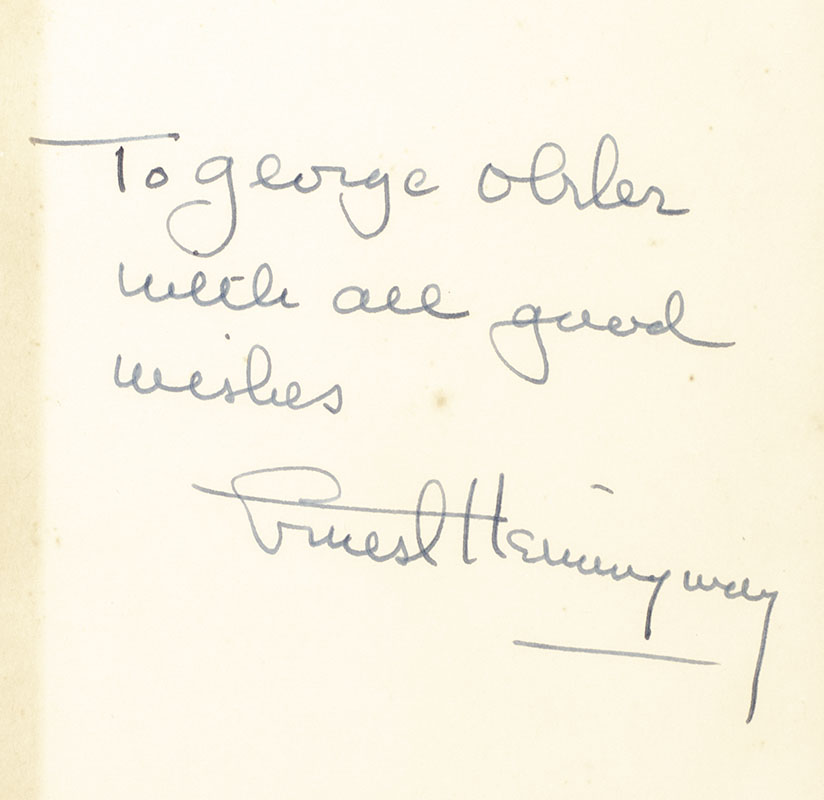 To george Obler
with all good
wishes
Ernest Hemingway